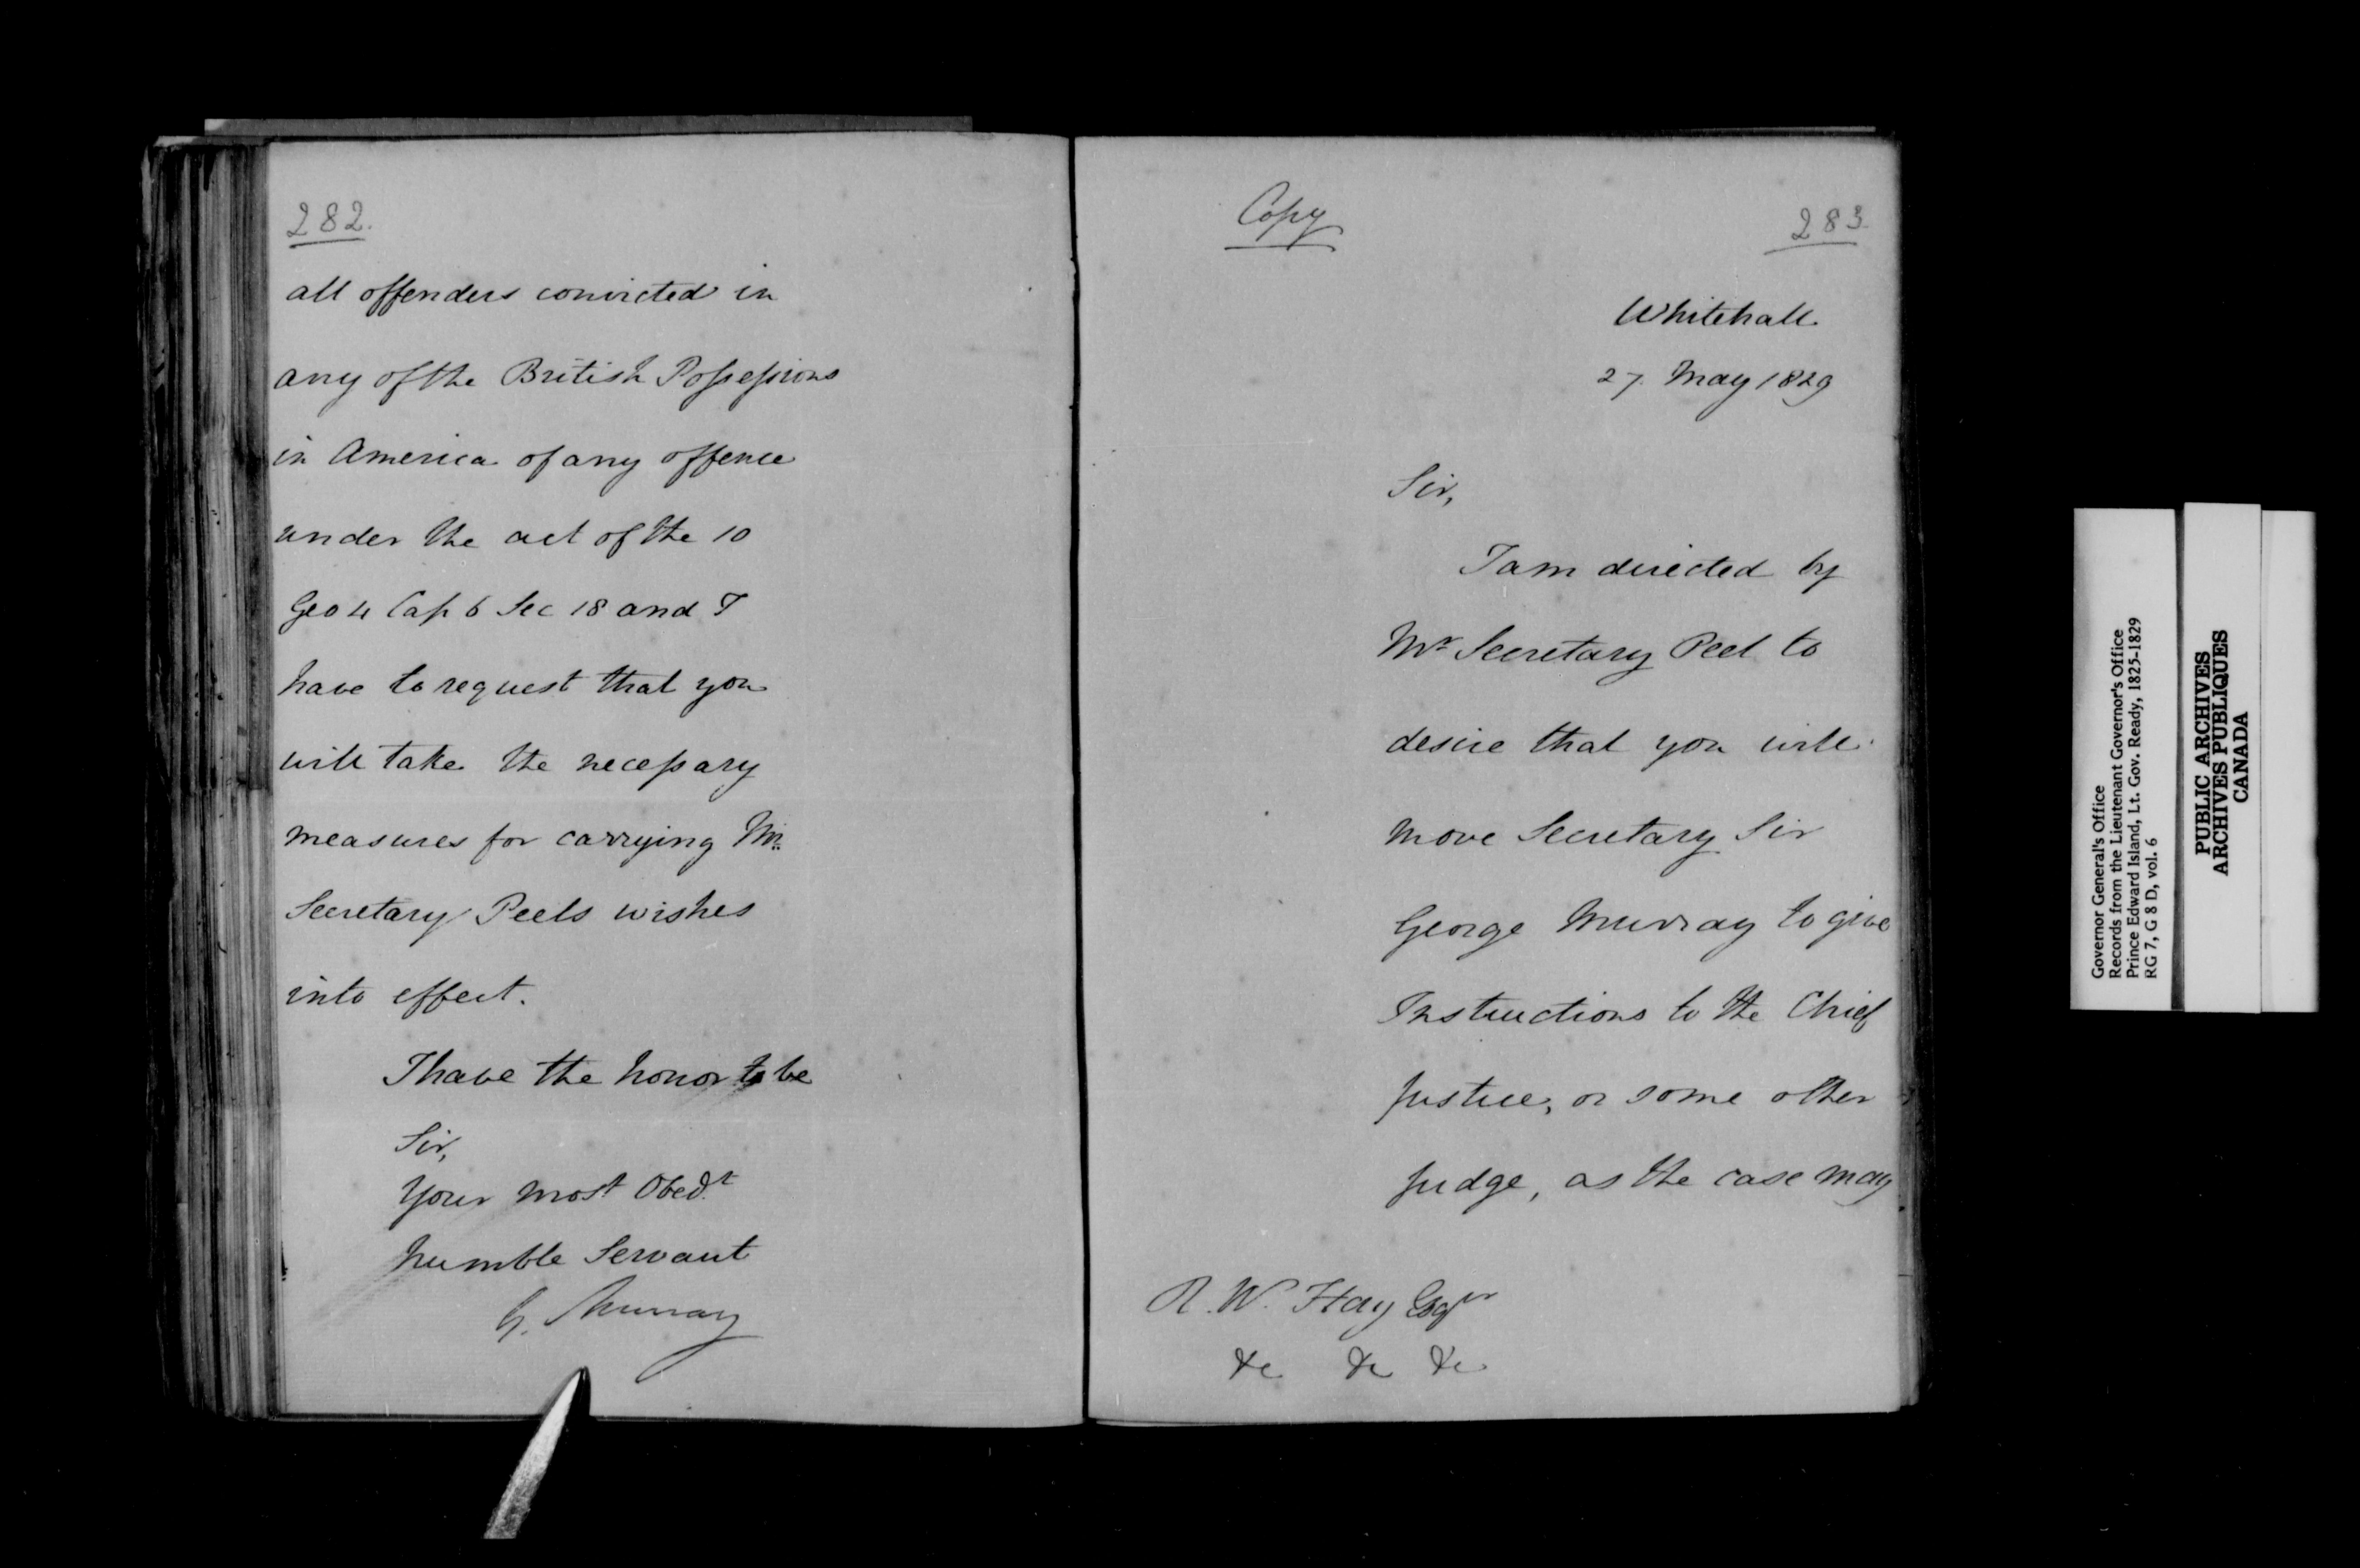 282.
all offenders convicted in
any of the British Possessions
in America of any offence
under the act of the 10
Geo 4 Cap 6 Sec 18 and I
have to request that you
will take the necessary
measures for carrying Mr.
Secretary Peels wishes
into effect.
I have the honor to be
Sir,
Your most Obedt
humble Servant
G. Murray
Copy
283.
Whitehall
27. May 1829
Sir,
I am directed by
Mr Secretary Peel to
desire that you will
move Secretary Sir
George Murray to give
Instructions to the Chief
Justice, or some other
Judge, as the case may
R. W. Hay Esqr
&c &c &c
Governor General's Office
Records from the Lieutenant Governor's Office
Prince Edward Island, Lt. Gov. Ready, 1825-1829
RG 7, G 8 D, vol. 6
PUBLIC ARCHIVES
ARCHIVES PUBLIQUES
CANADA